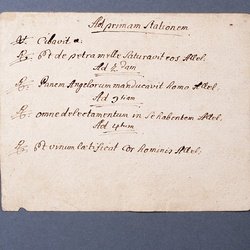 Ad primam Stationem
V. Cibavit &.
R. Et de petra melle saturavit eos Allel.
Ad 2dam
R. Panem Angelorum manducavit homo Allel.
Ad 3tiam
R. omne delectamentum in se habentem Allel.
Ad 4tum
R. Et vinum laetificet cor hominis Allel.